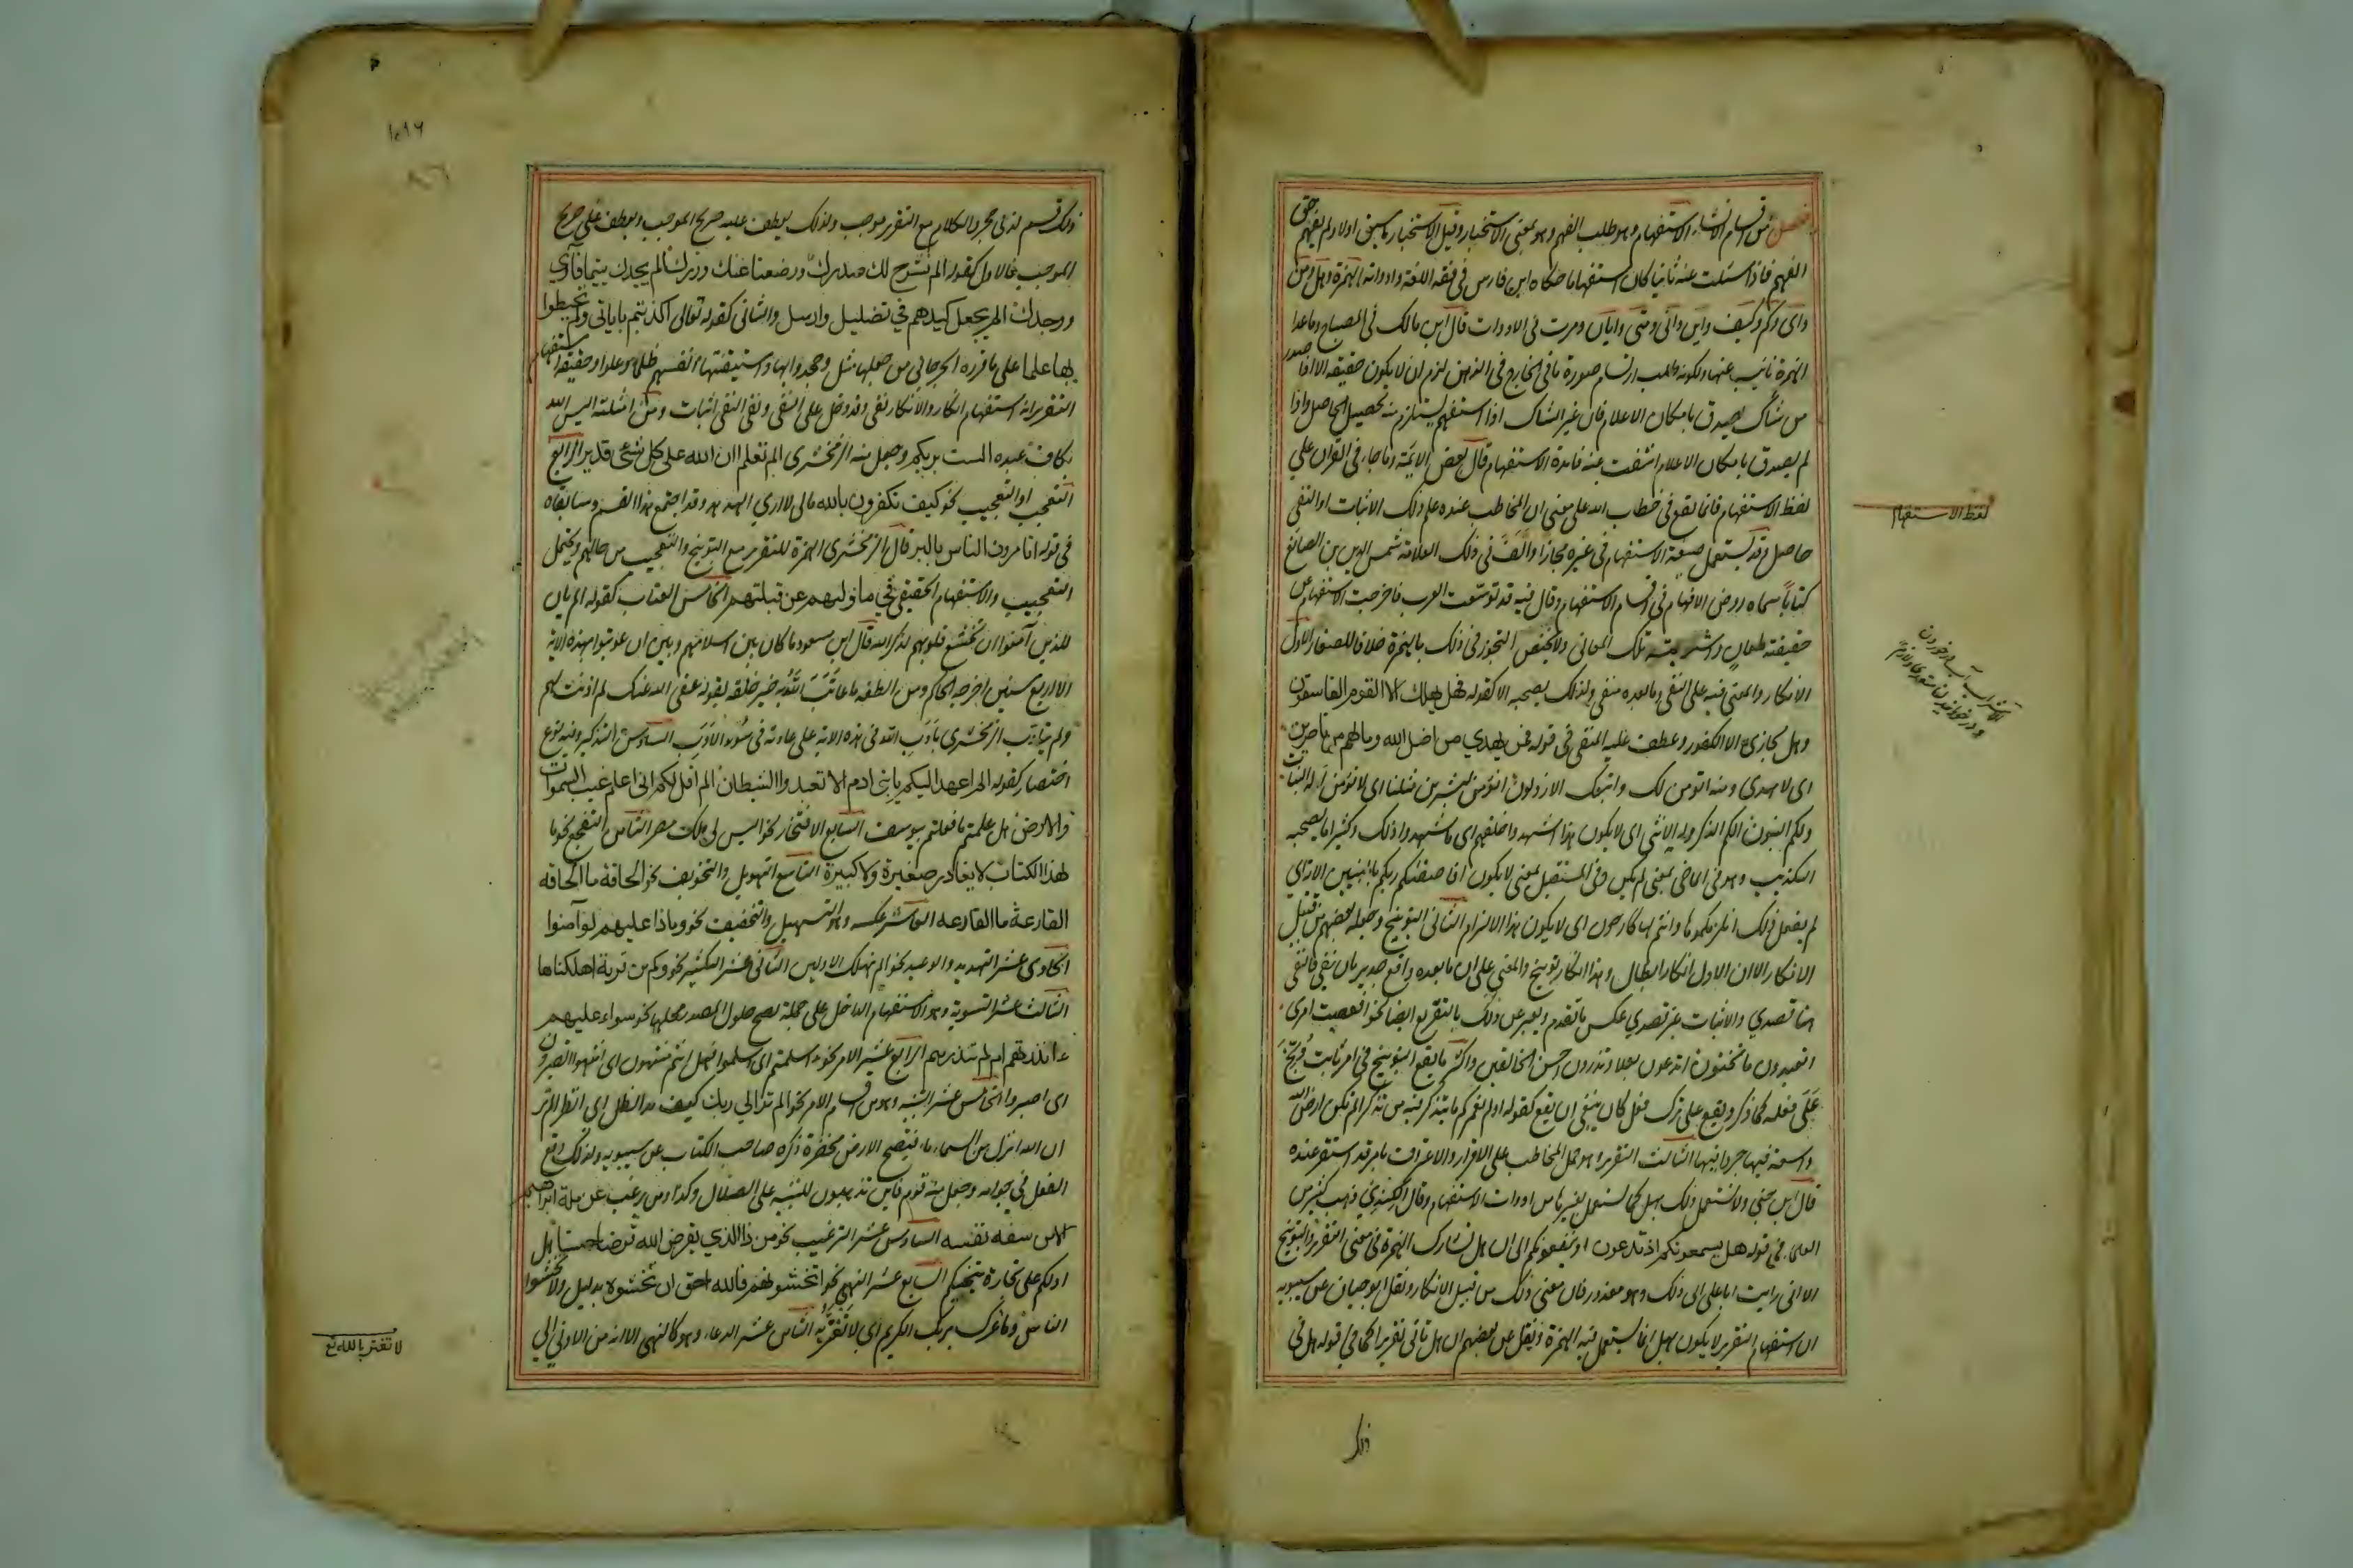 فصل من اقسام الانشاء الاستفهام وهو طلب الفهم وهو بمعنى الاستخبار وقيل الاستخبار ما سبق اولا ولم يفهم حق
الفهم فاذا سئلت عنه ثانيا كان استفهاما حكاه ابن فارس في فقه اللغة وادواته الهمزة وهل وما ومن
واى وكم وكيف واين وانى ومتى وايان ومرت في الادوات قال ابن مالك في المصباح وما عدا
الهمزة نائب عنها ولكونه طلب ارتسام صورة ما في الخارج في الذهن لزم ان لا يكون حقيقة الا اذا صدر
من شاك يصدق بامكان الاعلام فان غير الشاك اذا استفهم يستلزم منه تحصيل الحاصل واذا
لم يصدق بامكان الاعلام انتفت عنه فائدة الاستفهام قال بعض الائمة وما جاء في القران على
لفظ الاستفهام فانما يقع في خطاب الله على معنى ان المخاطب عنده علم ذلك الاثبات او النفى
حاصل وقد يستعمل صيغة الاستفهام في غيره مجازا والف في ذلك العلامة شمس الدين بن الصائغ
كتابا سماه روض الافهام في اقسام الاستفهام وقال فيه قد توسعت العرب فاخرجت الاستفهام عن
حقيقته لمعان واشربته تلك المعانى ولا يختص التجوز في ذلك بالهمزة خلافا للصفار الاول
الانكار والمعنى فيه على النفى وما بعده منفى ولذلك يصحبه الا كقوله فهل يهلك الا القوم الفاسقون
وهل يجازى الا الكفور وعطف عليه المنفى في قوله فمن يهدي من اضل الله وما لهم من ناصرين
اى لا يهدى ومنه انؤمن لك واتبعك الارذلون انؤمن لبشرين مثلنا اى لا نؤمن ام له البنات
ولكم البنون الكم الذكر وله الانثى اى لا يكون هذا اشهدوا خلقهم اى ما شهدوا ذلك وكثيرا ما يصحبه
التكذيب وهو في الماضى بمعنى لم يكن وفى المستقبل بمعنى لا يكون افاصفيكم ربكم بالبنين الاية اي
لم يفعل ذلك انلزمكموها وانتم لها كارهون اى لا يكون هذا الالزام الثانى التوبيخ وجعله بعضهم من قبيل
الانكار الا ان الاول انكار ابطال وهذا انكار توبيخ والمعنى على ان ما بعده واقع جدير بان ينفى فالنفى
هنا قصدي والاثبات غير قصدي عكس ما تقدم ويعبر عن ذلك بالتقريع ايضا نحو افعصيت امرى
اتعبدون ما تنحتون اتدعون بعلا وتذرون احسن الخالقين واكثر ما يقع التوبيخ في امر ثابت وبخ
على فعله كما ذكر ويقع على ترك فعل كان ينبغى ان يقع كقوله اولم نعمركم ما يتذكر فيه من تذكر الم تكن ارض الله
واسعة فتهاجروا فيها الثالث التقرير وهو حمل المخاطب على الاقرار والاعتراف بامر قد استقر عنده
قال ابن جنى ولا يستعمل ذلك بهل كما يستعمل بغيرها من ادوات الاستفهام وقال الكندي ذهب كثير من
العلماء في قوله هل يسمعونكم اذ تدعون او ينفعونكم الى ان هل تشارك الهمزة في معنى التقرير والتوبيخ
الا انى رايت ابا على ابى ذلك وهو معذور فان معنى ذلك من قبيل الانكار ونقل ابو حيان عن سيبويه
ان استفهام التقرير لا يكون بهل انما يستعمل فيه الهمزة ونقل عن بعضهم ان هل تاتى تقريرا كما في قوله هل في
ذلك
لفظ الاستفهام
ذلك قسم لذى حجر والكلام مع التقرير موجب ولذلك يعطف عليه صريح الموجب ويعطف على صريح
الموجب فالاول كقوله الم نشرح لك صدرك ووضعنا عنك وزرك الم يجدك يتيما فآوى
ووجدك الم يجعل كيدهم في تضليل وارسل والثانى كقوله تعالى اكذبتم باياتى ولم تحيطوا
بها علما على ما قرره الجرجاني من جعلها مثل وجحدوا بها واستيقنتها انفسهم ظلما وعلوا وحقيقة استفهام
التقرير انه استفهام انكار والانكار نفى وقد دخل على النفى ونفى النفى اثبات ومن امثلته اليس الله
بكاف عبده الست بربكم وجعل منه الزمخشرى الم تعلم ان الله على كل شئ قدير الرابع
التعجب او التعجيب نحو كيف تكفرون بالله مالى لا ارى الهدهد وقد اجتمع هذا القسم وسابقاه
في قوله اتامرون الناس بالبر قال الزمخشرى الهمزة للتقرير مع التوبيخ والتعجيب من حالهم ويحتمل
التعجيب والاستفهام الحقيقي في ما وليهم عن قبلتهم الخامس العتاب كقوله الم يان
للذين آمنوا ان تخشع قلوبهم لذكر الله قال ابن مسعود ما كان بين اسلامهم وبين ان عوتبوا بهذه الاية
الا اربع سنين اخرجه الحاكم ومن الطفه ما عاتب الله به خير خلقه بقوله عفى الله عنك لم اذنت لهم
ولم يتادب الزمخشرى بادب الله في هذه الاية على عادته في سوء الادب السادس التذكير وفيه نوع
اختصار كقوله الم اعهد اليكم يا بنى ادم الا تعبدوا الشيطان الم اقل لكم انى اعلم غيب السموات
والارض هل علمتم ما فعلتم بيوسف السابع الافتخار نحو اليس لى ملك مصر الثامن التفجع نحو ما
لهذا الكتاب لا يغادر صغيرة ولا كبيرة التاسع التهويل والتخويف نحو الحاقة ما الحاقه
القارعة ما القارعه العاشر عكسه وهو التسهيل والتخفيف نحو وماذا عليهم لو آمنوا
الحادى عشر التهديد والوعيد نحو الم نهلك الاولين الثانى عشر التكثير نحو وكم من قرية اهلكناها
الثالث عشر التسوية وهو الاستفهام الداخل على جملة يصح حلول المصدر محلها نحو سواء عليهم
ءانذرتهم ام لم تنذرهم الرابع عشر الامر نحو ءاسلمتم اى اسلموا فهل انتم منتهون اى انتهوا اتصبرون
اى اصبروا الخامس عشر التنبيه وهو من اقسام الامر نحو الم تر الي ربك كيف مد الظل اى انظر الم تر
ان الله انزل من السماء ماء فتصبح الارض مخضرة ذكره صاحب الكتاب عن سيبويه ولذلك رفع
الفعل في جوابه وجعل منه قوم فاين تذهبون للتنبيه على الضلال وكذا ومن يرغب عن ملة ابراهيم
الا من سفه نفسه السادس عشر الترغيب نحو من ذا الذي يقرض الله قرضا حسنا هل
ادلكم على تجارة تنجيكم السابع عشر النهى نحو اتخشونهم فالله احق ان تخشوه بدليل ولا تخشوا
الناس وما غرك بربك الكريم اى لا تغتر به الثامن عشر الدعاء وهو كالنهى الا انه من الادنى الى
لا تغتر بالله تع
١٠٩٦